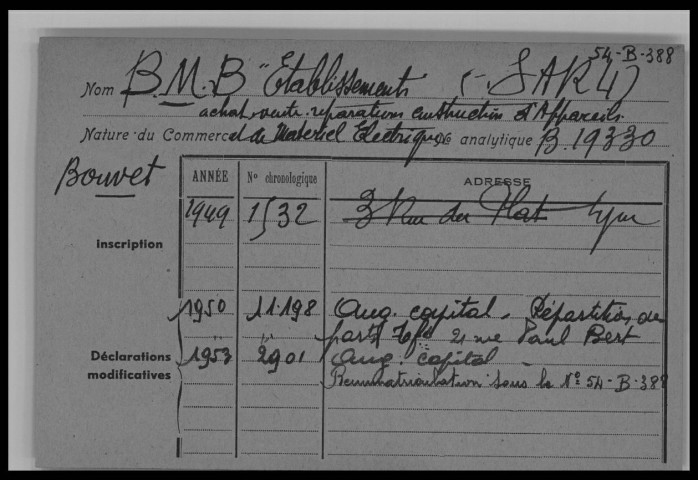 54-B-388
Nom B.M.B "Etablissements (-SARL)
achat, vente, réparations construction d'Appareils
Nature du Commerce et de Matériel Electrique N° analytique B.19330
Bouvet
ANNÉE N° chronologique ADRESSE
1949 1532 3 Rue du Plat Lyon
Inscription
1950 11.198 Aug. capital. Répartition des
parts Tsf 21 rue Paul Bert
Déclarations
modificatives
1953 2901 Aug. capital -
Reimmatriculation sous le N° 54-B-388